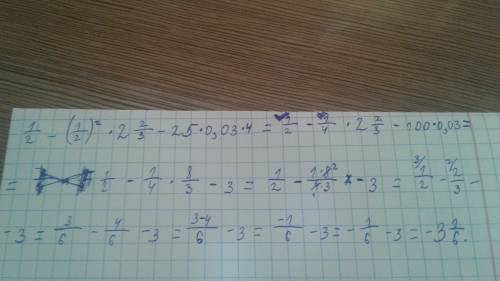 1/2 - (1/2)² · 2 2/3 - 25·0,03·4 = 1/2 - 1/4 · 2 2/3 - 100·0,03 =
= 1/2 - 1/4 · 8/3 - 3 = 1/2 - 1·8²/4·3 - 3 = ³⁾1/2 - ²⁾2/3 -
- 3 = 3/6 - 4/6 - 3 = 3-4/6 - 3 = -1/6 - 3 = - 1/6 - 3 = -3 1/6.